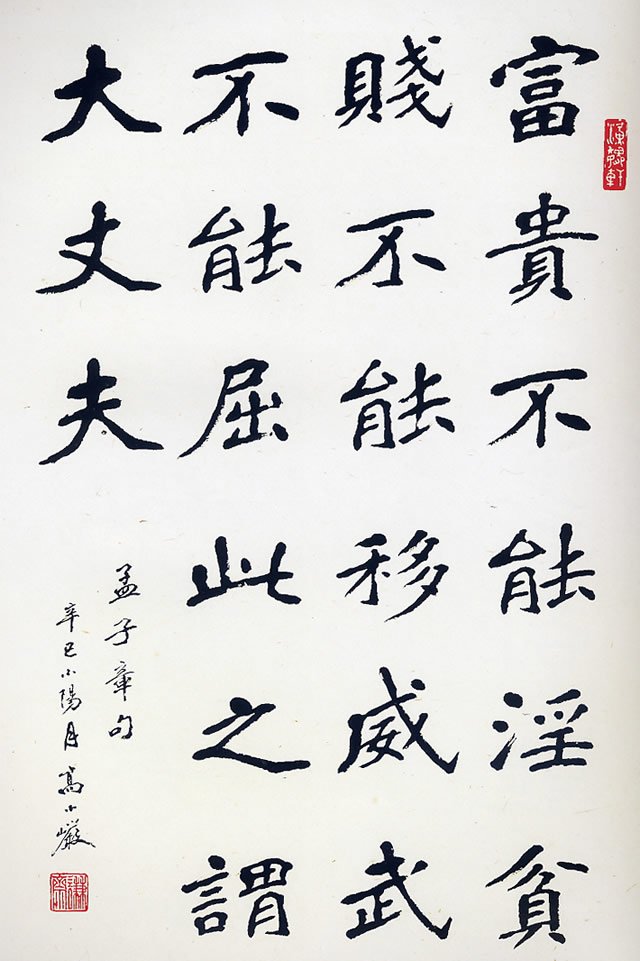 富貴不能淫貧
賤不能移威武
不能屈此之謂
大丈夫
孟子章句
辛巳小陽月高小巖